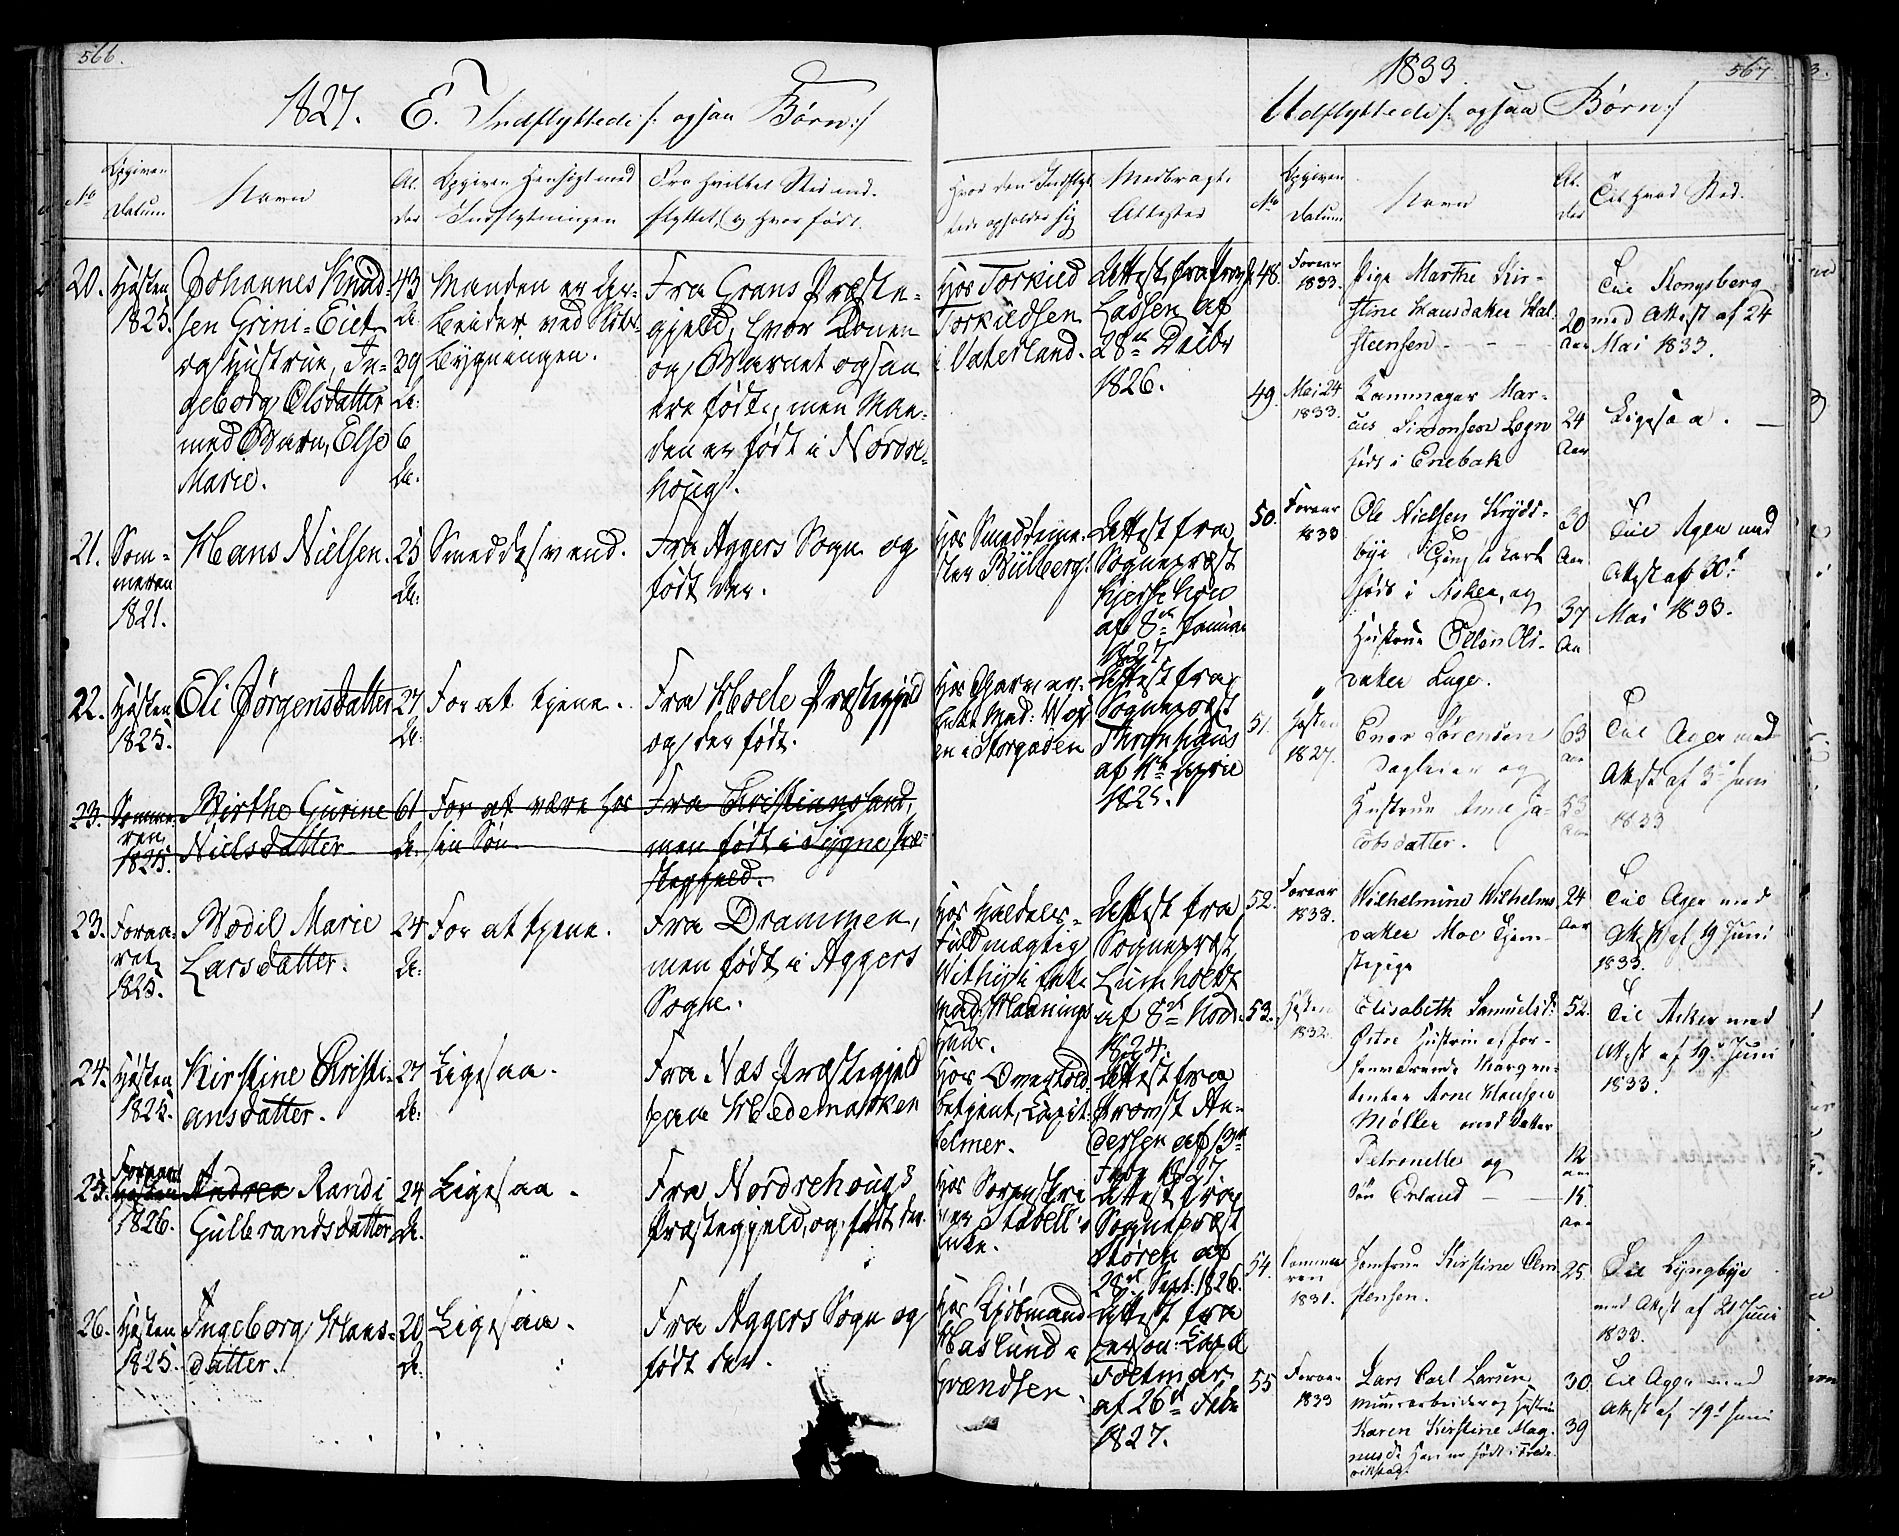 566.
1827. E. Indflyttede /: ogsaa Børn :/
No
Opgiven Datum
Navn
Alder
Opgiven Hensigt med Indflytningen
Fra hvilket Sted indflyttet, og hvor født.
Hvor den Indflyttede opholder sig
Medbragte Attester
20.
Høsten
1825.
Johannes Knud-
sen Grini-Eiet
og Hustrue, In-
geborg Olsdatter
med Barn, Else
Marie.
43
39
6
Manden er Ar-
beider ved Slots-
bygningen.
Fra Grans Præste-
gjeld, hvor Konen
og Barnet ogsaa
ere fødte, men Man-
den er født i Nordre-
houg.
Hos Torkild
Torkildsen
i Vaterland.
Attest fra
Lassen af
28de Decbr
1826.
21.
Som-
meren
1821.
Hans Nielsen.
25
Smeddesvend.
Fra Aggers Sogn og
født der.
Hos Smedmeine-
ster Bülberg.
Attest fra
Sognepræst
af 8de Januar
1827
22.
Høsten
1825.
Eli Jørgensdatter
27
For at tjene.
Fra Hole Præstegjeld
og der født.
en i Storgaden
Attest fra
Sognepræst
af 11te April
1825.
23.
Somme-
ren
1825.
Birthe Gurine
Nielsdatter
61
For at være hos
sin Søn
Fra Christianssand,
men født i Lygne Præ-
stegjeld.
23.
Foraa-
ret
1825.
Bodil Marie
Larsdatter.
24
For at tjene.
Fra Drammen,
men født i Aggers
Sogn.
Hos
Fuldmægtig
Attest fra
Sognepræst
Lumholdt
af 8de Novbr.
1824.
24.
Høsten
1825.
Kirstine Christi-
ansdatter.
27
Ligesaa.
Fra Næs Præstegjeld
paa Hedemarken
Hos Overtold-
betjent, Capit.
Helmer.
Attest fra
Provst An-
dersen af 13de
Febr 1827
25.
Foraaret
Høsten
1826.
Andrea Randi
Gulbrandsdatter
24
Ligesaa.
Fra Nordrehougs
Præstegjeld, og født der.
Hos Sorenskri-
ver Stabell's
Enke.
Attest fra
Sognepræst
Støren af
28de Sept. 1826.
26.
Høsten
1825.
Ingeborg Hans-
datter.
20
Ligesaa.
Fra Aggers Sogn og
født der.
Hos Kjøbmand
Haslund i
Grændsen.
Attest fra
person: Capel
Foltmar
af 26de Febr
1827.
1833.
567
Udflyttede /: ogsaa Børn :/
No
Opgiven Datum
Navn
Alder
Til hvad Sted.
48.
Foraar
1833.
Pige Marthe Kir-
stine Hansdatter Hal-
steensen
20
Aar
Til Kongsberg
med Attest af 24
Mai 1833.
49.
Mai 24
1833.
Kammager Mar-
cus Simonsen Logn
født i Enebak
24
Aar
Ligesaa.
50.
Foraar
1833
Ole Nielsen Kryds-
bye
født i Asker, og
Hustrue Ellen Ols-
datter Luge.
30
Aar
37
Aar
Til Ager med
Attest af 30te
Mai 1833.
51.
Høsten
1827.
Ener Sørensen
Dagleier og
Hustrue Anne Ja-
cobsdatter.
63
Aar
53
Aar
Til Ager med
Attest af 3de Juni
1833
52.
Foraar
1833.
Wilhelmine Wilhelms
datter Moe Tjene-
stepige
24
Aar
Til Ager med
Attest af 19 Juni
1833.
53.
Høsten
1832.
Elisabeth Samuelsd:
Østre Hustrue af for-
henværende Marqven-
tenter Arne Hansen
Møller med Datter
Petronelle og
Søn Erland
52.
12
Aar
15.
Aar
Til Asker med
Attest af 19de Juni
1833.
54.
Somme
ren
1831.
Jomfrue Kirstine Clem
stensen.
25.
Til Lyngbye
med Attest af 21 Juni
1833.
55
Foraar
1833
Lars Carl Larsen
Muurarbeider og Hustrue
Karen Kirstine Mag-
nusd. Han er født i Frede-
rikstad.
30.
39
Til Ager med
Attest af 19de Juni